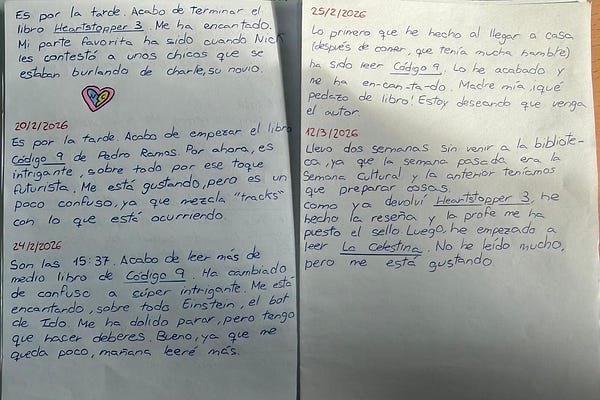 Es por la tarde. Acabo de terminar el
libro Heartstopper 3. Me ha encantado.
Mi parte favorita ha sido cuando Nick
les contestó a unos chicos que se
estaban burlando de charle, su novio.
20/2/2026
Es por la tarde. Acabo de empezar el libro
Código 9 de Pedro Ramos. Por ahora, es
intrigante, sobre todo por ese toque
futurista. Me está gustando, pero es un
poco confuso, ya que mezcla "tracks"
con lo que está ocurriendo.
24/2/2026
Son las 15:37. Acabo de leer más de
medio libro de Código 9. Ha cambiado
de confuso a súper intrigante. Me está
encantando, sobre todo Einstein, el bot
de Ido. Me ha dolido parar, pero tengo
que hacer deberes. Bueno, ya que me
queda poco, mañana leeré más.
25/2/2026
Lo primero que he hecho al llegar a casa
(después de comer, que tenía mucha hambre)
ha sido leer Código 9. Lo he acabado y
me ha en-can-ta-do. Madre mía, ¡qué
pedazo de libro! Estoy deseando que venga
el autor.
12/3/2026
Llevo dos semanas sin venir a la bibliote-
ca, ya que la semana pasada era la
Semana Cultural y la anterior teníamos
que preparar cosas.
Como ya devolví Heartstopper 3, he
hecho la reseña y la profe me ha
puesto el sello. Luego, he empezado a
leer La Celestina. No he leído mucho,
pero me está gustando.